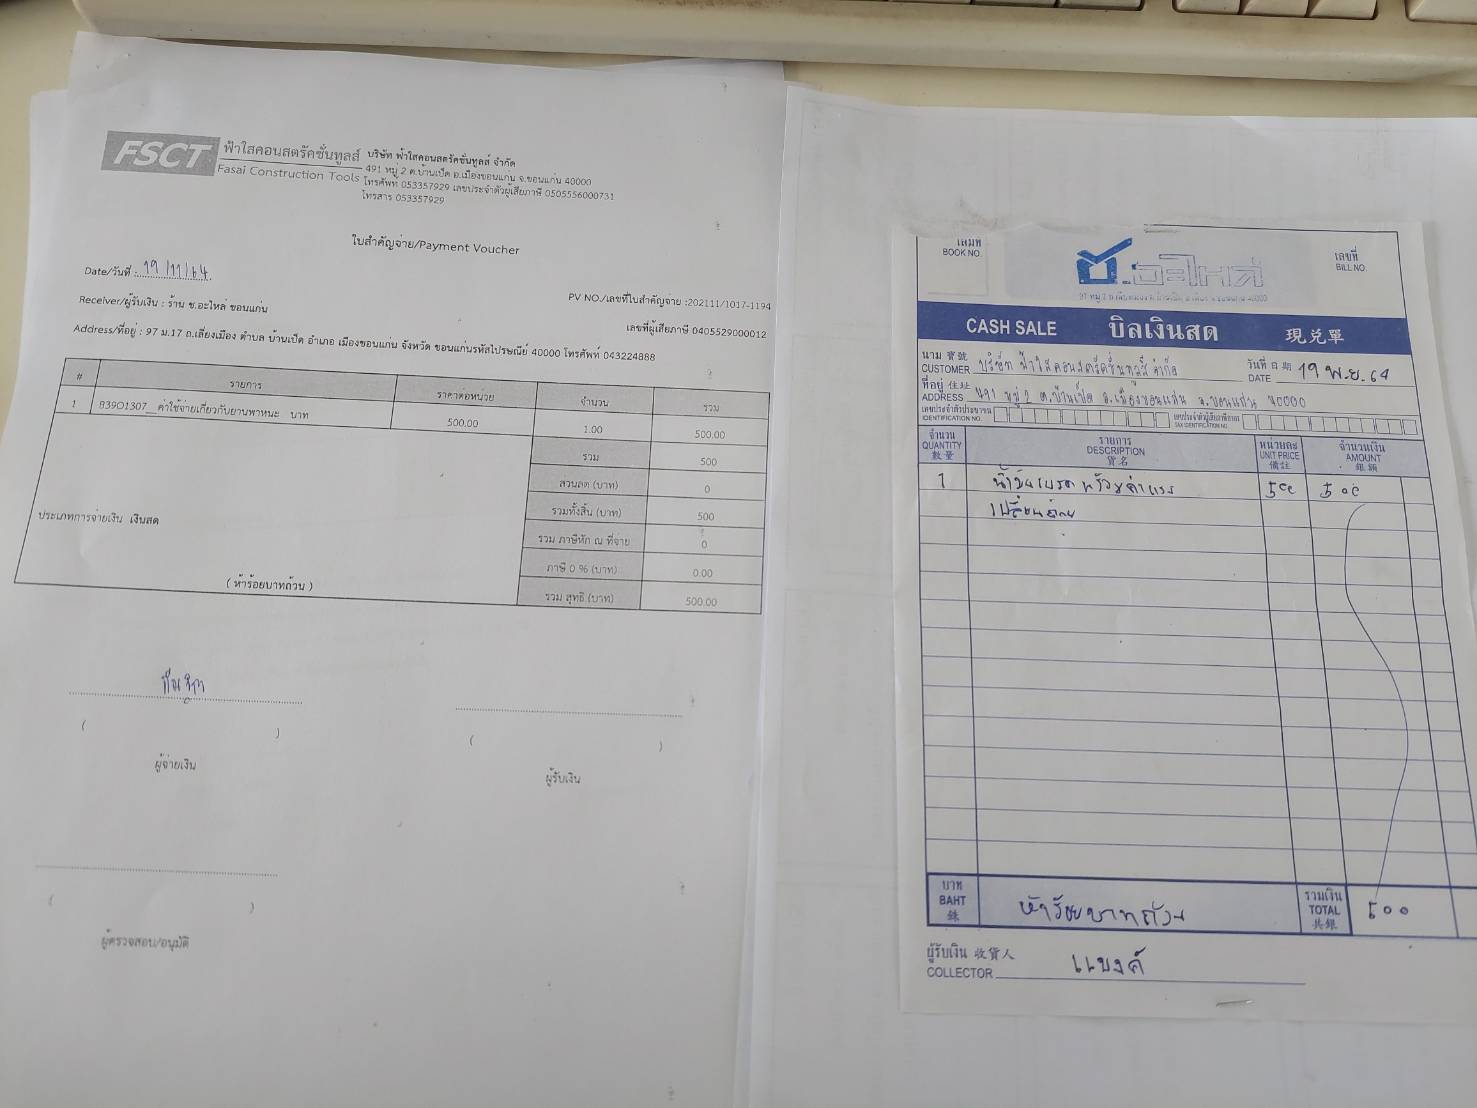 FSCT
ฟ้าใสคอนสตรัคชั่นทูลส์
Fasai Construction Tools
บริษัท ฟ้าใสคอนสตรัคชั่นทูลส์ จำกัด
491 หมู่ 2 ต.บ้านเป็ด อ.เมืองขอนแก่น จ.ขอนแก่น 40000
โทรศัพท์ 053357929 เลขประจำตัวผู้เสียภาษี 0505556000731
โทรสาร 053357929
ใบสำคัญจ่าย/Payment Voucher
Date/วันที่ : 19/11/64
PV NO./เลขที่ใบสำคัญจ่าย :202111/1017-1194
Receiver/ผู้รับเงิน : ร้าน ช.อะไหล่ ขอนแก่น
เลขที่ผู้เสียภาษี 0405529000012
Address/ที่อยู่ : 97 ม.17 ถ.เลี่ยงเมือง ตำบล บ้านเป็ด อำเภอ เมืองขอนแก่น จังหวัด ขอนแก่นรหัสไปรษณีย์ 40000 โทรศัพท์ 043224888
# รายการ ราคาต่อหน่วย จำนวน รวม
1 B3901307__ค่าใช้จ่ายเกี่ยวกับยานพาหนะ บาท 500.00 1.00 500.00
รวม 500
ส่วนลด (บาท) 0
รวมทั้งสิ้น (บาท) 500
รวม ภาษีหัก ณ ที่จ่าย 0
ภาษี 0 % (บาท) 0.00
รวม สุทธิ (บาท) 500.00
ประเภทการจ่ายเงิน เงินสด
( ห้าร้อยบาทถ้วน )
( )
ผู้จ่ายเงิน
( )
ผู้รับเงิน
( )
ผู้ตรวจสอบ/อนุมัติ
เล่มที่
BOOK NO.
ช.อะไหล่
เลขที่
BILL NO.
CASH SALE บิลเงินสด 現兌單
นาม 寶號
CUSTOMER บริษัท ฟ้าใสคอนสตรัคชั่นทูลส์ จำกัด
วันที่ 日期
DATE 19 พ.ย. 64
ที่อยู่ 住址
ADDRESS 491 หมู่ 2 ต.บ้านเป็ด อ.เมืองขอนแก่น จ.ขอนแก่น 40000
เลขประจำตัวประชาชน
IDENTIFICATION NO.
เลขประจำตัวผู้เสียภาษีอากร
TAX IDENTIFICATION NO.
จำนวน
QUANTITY
數量
รายการ
DESCRIPTION
貨名
หน่วยละ
UNIT PRICE
備註
จำนวนเงิน
AMOUNT
銀額
1 น้ำมันเบรค พร้อมค่าแรง 500 500
เปลี่ยนถ่าย
บาท
BAHT
銖
ห้าร้อยบาทถ้วน
รวมเงิน
TOTAL
共銀
500
ผู้รับเงิน 收貨人
COLLECTOR แบงค์